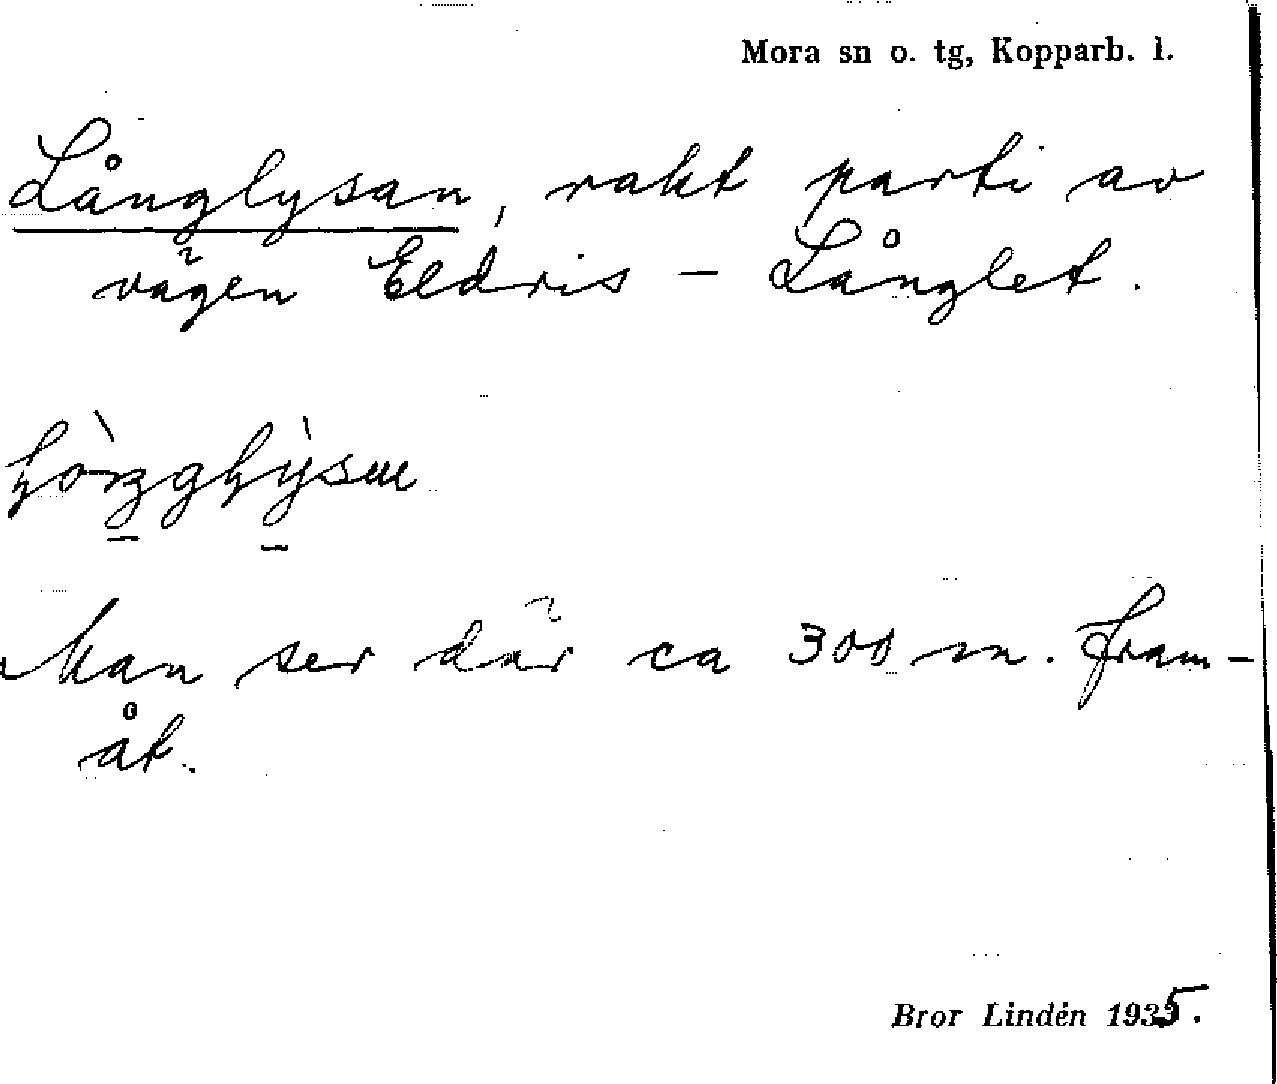 Mora sn o. tg, Kopparb. l.
Långlysan, rakt parti av
vägen Eldris – Långlet.
Man ser där ca 300 m. fram-
åt.
Bror Lindén 1935.